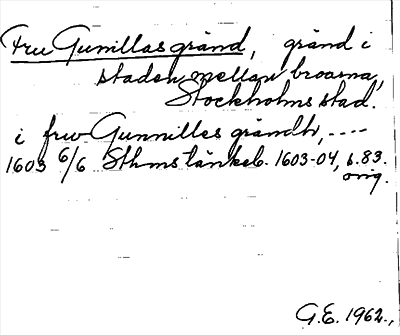 Fru Gunillas gränd, gränd i
staden mellan broarna,
Stockholms stad.
i frw Gunnilles grändh, ----
1603 6/6 Sthms tänkeb. 1603-04, s. 83.
orig.
G.E. 1962.,